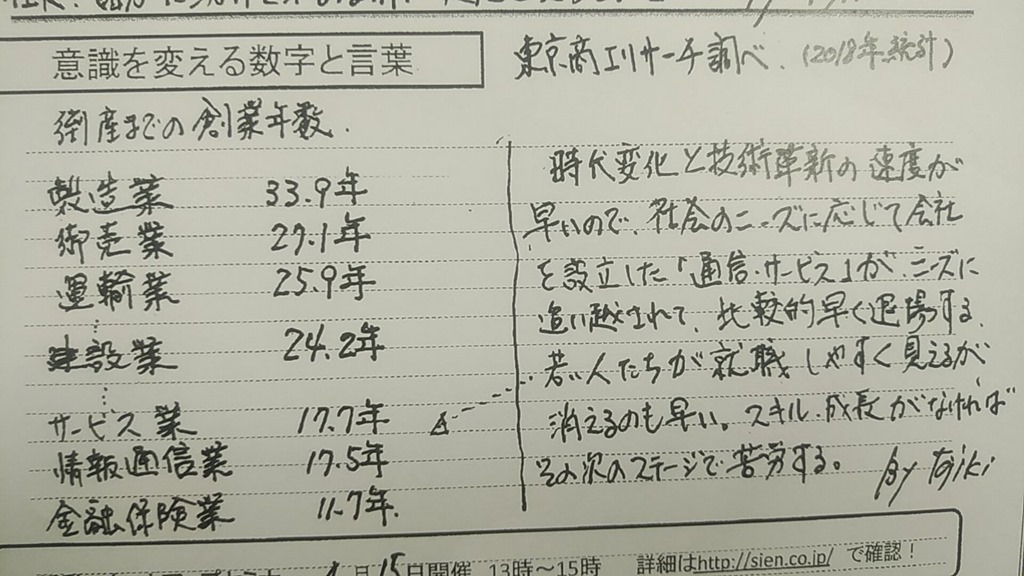 意識を変える数字と言葉
東京商工リサーチ調べ.(2018年統計)
倒産までの創業年数.
製造業 33.9年
卸売業 27.1年
運輸業 25.9年
建設業 24.2年
サービス業 17.7年
情報通信業 17.5年
金融保険業 11.7年.
時代変化と技術革新の速度が
早いので、社会のニーズに応じて会社
を設立した「通信・サービス」が、ニーズに
追い越されて、比較的早く退場する.
若い人たちが就職しやすく見えるが
消えるのも早い。スキル・成長がなければ
その次のステージで苦労する。 by Taiki
月15日開催 13時～15時 詳細はhttp://sien.co.jp/ で確認！